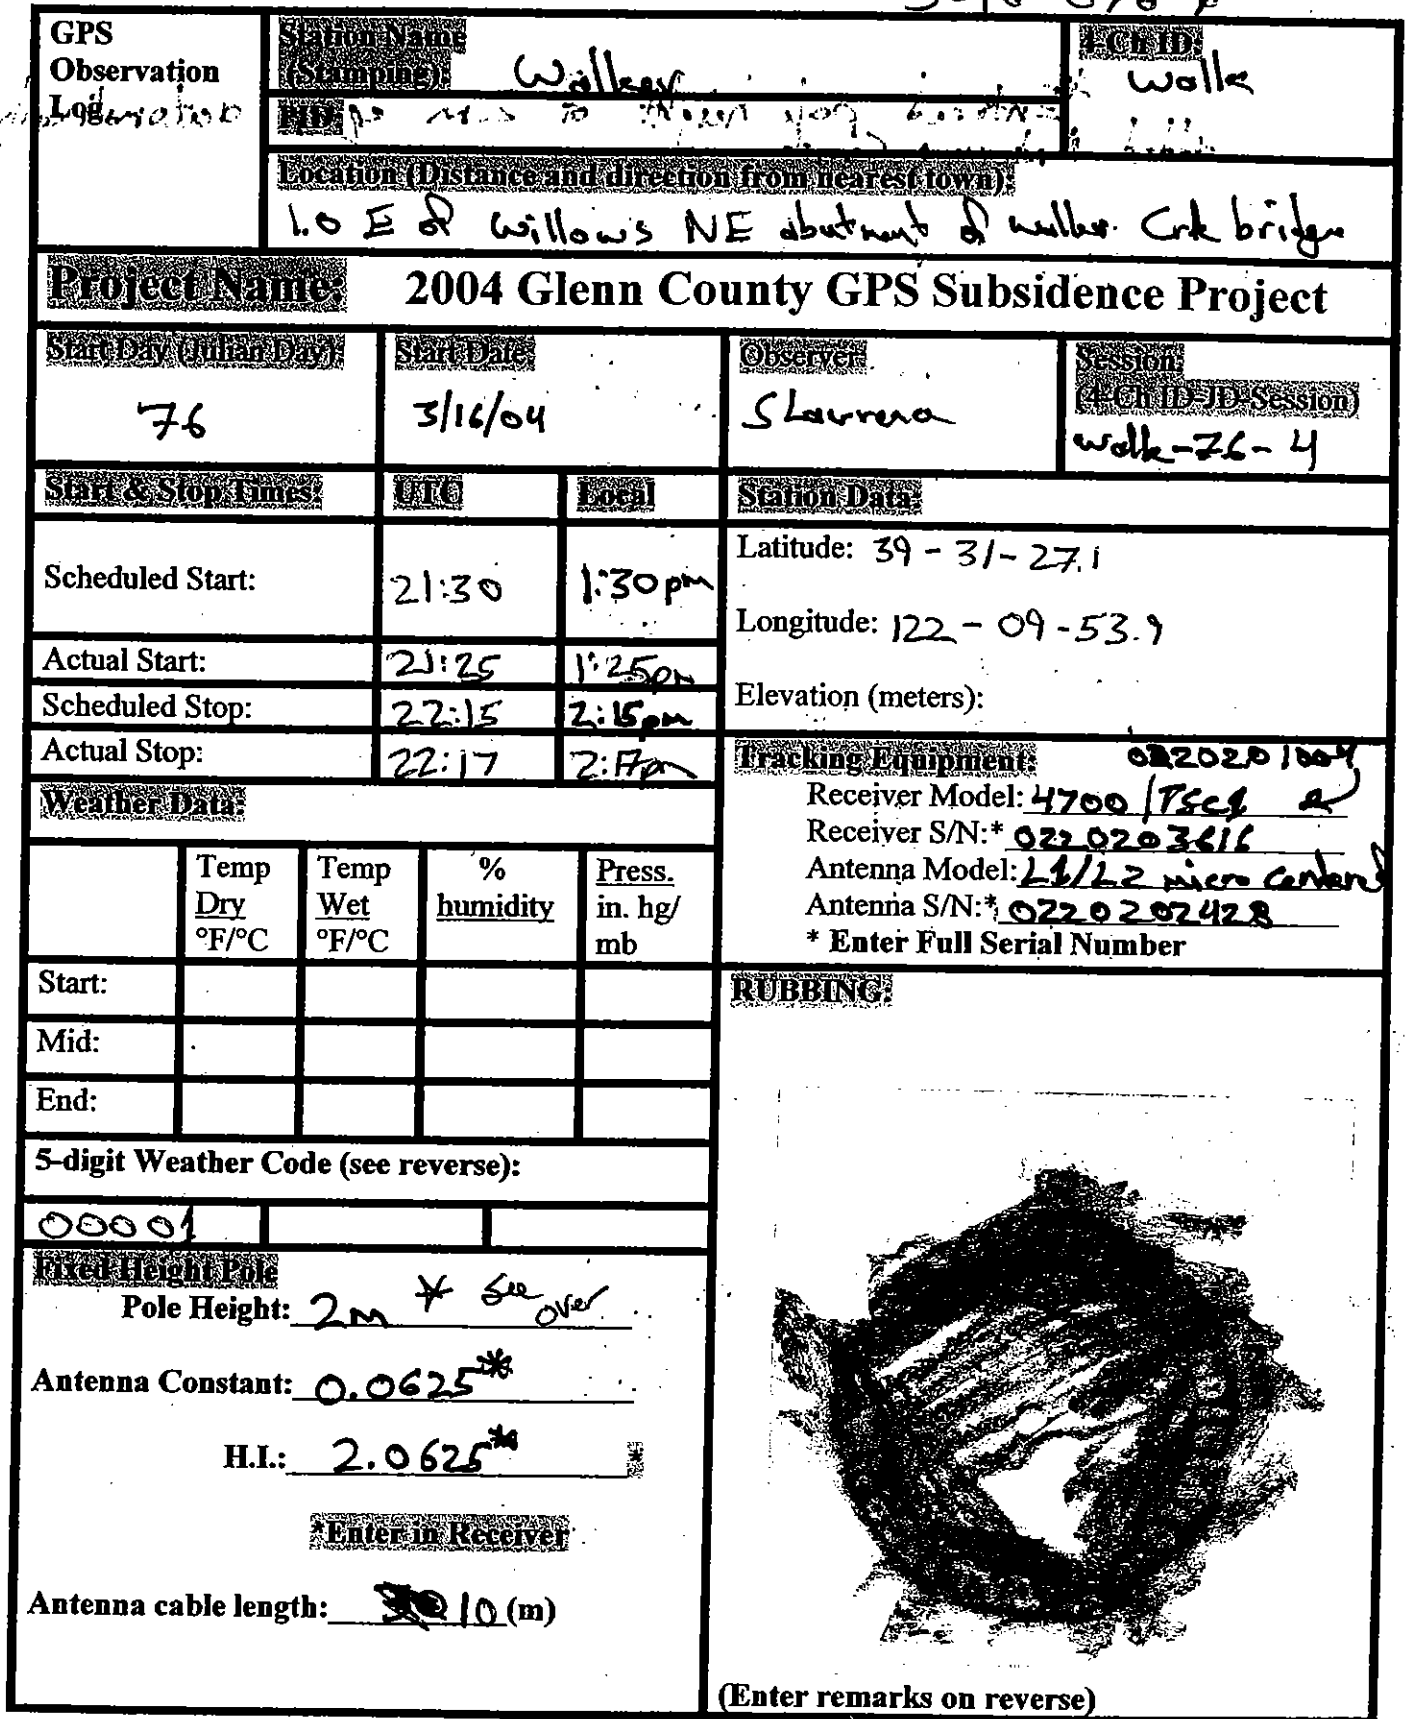 GPS
Observation
Log
Station Name
(Stamping):
Walker
4-Ch ID:
Walk
PID:
Location (Distance and direction from nearest town):
1.0 E of Willows NE abutment of Walker Crk bridge
Project Name: 2004 Glenn County GPS Subsidence Project
Start Day (Julian Day):
76
Start Date
3/16/04
Observer
S Lawrence
Session:
(4-Ch ID-JD-Session)
walk-76-4
Start & Stop Times: UTC Local
Scheduled Start: 21:30 1:30pm
Actual Start: 21:25 1:25pm
Scheduled Stop: 22:15 2:15pm
Actual Stop: 22:17 2:17pm
Station Data:
Latitude: 39-31-27.1
Longitude: 122-09-53.9
Elevation (meters):
Tracking Equipment: 0220201004
Receiver Model: 4700/TSC1
Receiver S/N:* 0220203616
Antenna Model: L1/L2 micro centered
Antenna S/N:* 0220202428
* Enter Full Serial Number
Weather Data:
Temp
Dry
°F/°C
Temp
Wet
°F/°C
%
humidity
Press.
in. hg/
mb
Start:
Mid:
End:
5-digit Weather Code (see reverse):
00001
Fixed Height Pole
Pole Height: 2m * See over
Antenna Constant: 0.0625*
H.I.: 2.0625* *
*Enter in Receiver
Antenna cable length: 10 (m)
RUBBING:
(Enter remarks on reverse)